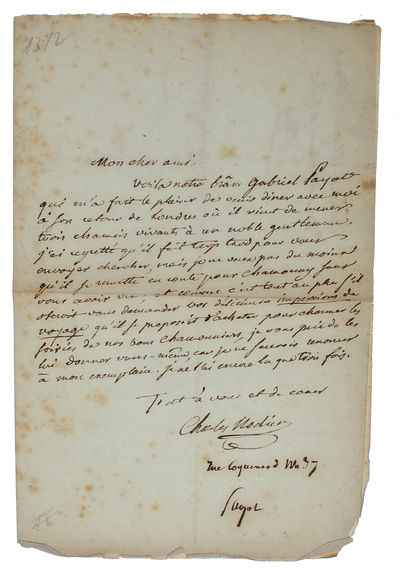 1312
Mon cher ami,
Voilà notre Gabriel Payot
qui m'a fait le plaisir de venir diner avec moi
à son retour de Londres où il vient de mener
trois chamois vivants à un noble gentleman.
j'ai regretté qu'il fût trop tard pour vous
envoyer chercher, mais je ne veux pas du moins
qu'il se remette en route pour Chamouny sans
vous avoir vu, et comme c'est tout au plus s'il
oseroit vous demander vos délicieuses impressions de
voyage qu'il se proposoit d'acheter pour charmer les
soirées de nos bons Chamouniers, je vous prie de les
lui donner vous-même, car je ne saurois renoncer
à mon exemplaire. je ne l'ai encore lu que trois fois.
Tout à vous et de cœur
Charles Nodier
rue 37
Payot